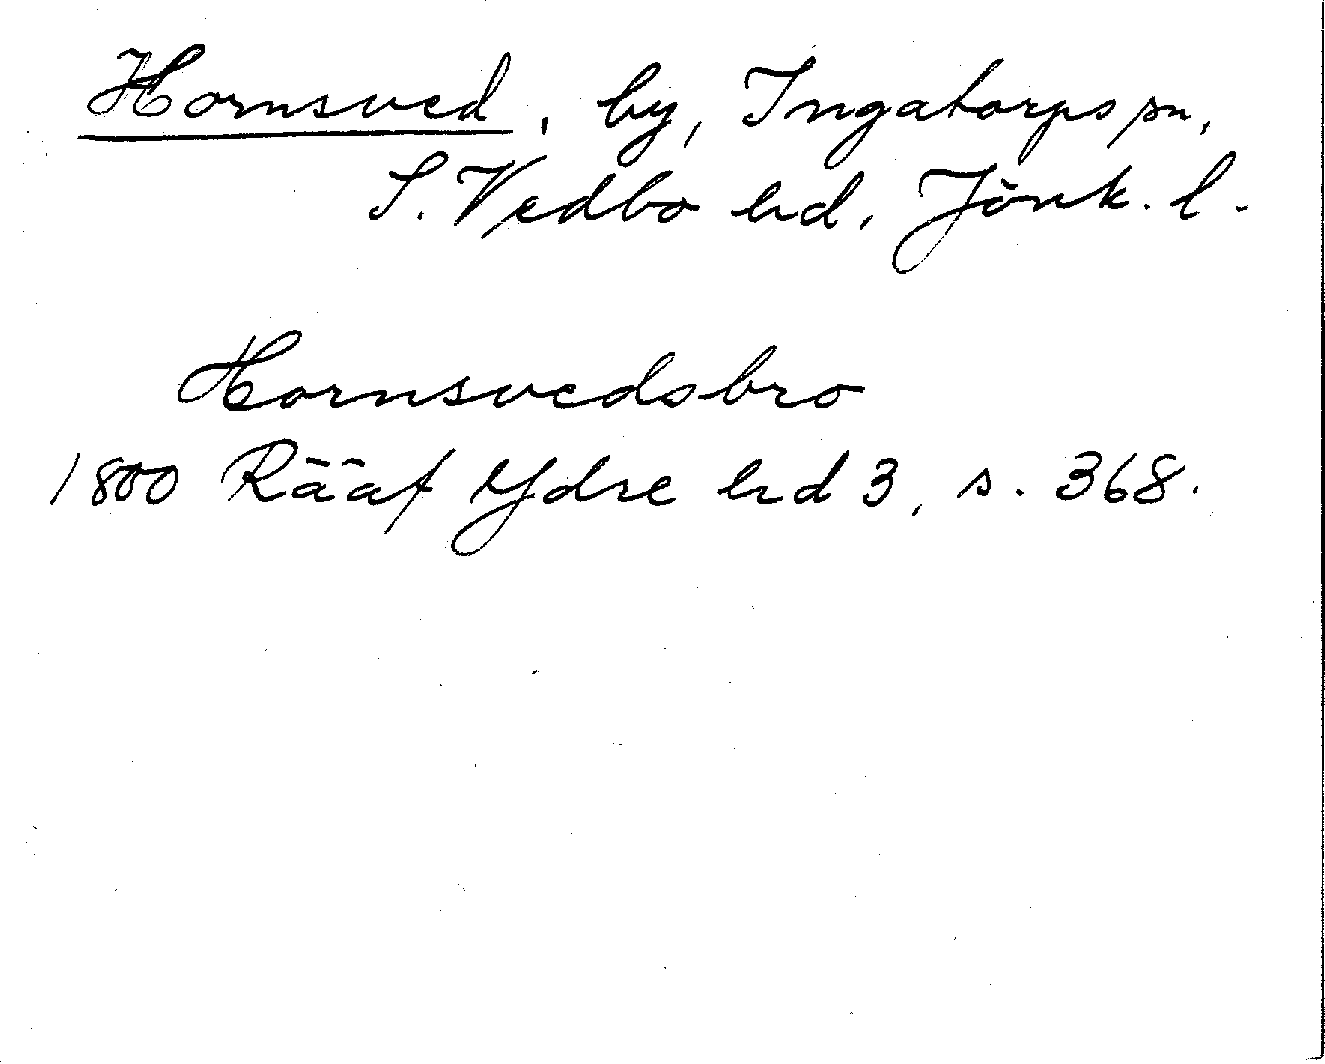 Hornsved, by, Ingatorps sn,
S. Vedbo hd, Jönk. l.
Hornsvedsbro
1800 Rääf Ydre hd 3, s. 368.